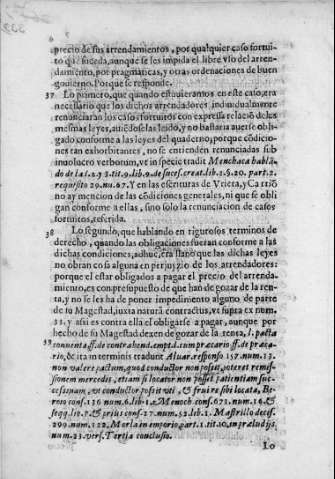 6
precio de sus arrendamientos, por qualquier caso fortui-
to q̃ suceda, aunque se les impida el libre vso del arren-
damiento, por pragmaticas, y otras ordenaciones de buen
gouierno. Porque se responde.
37 Lo primero, que quando estuuieramos en este caso, era
necessario que los dichos arrendadores indiuidualmente
renunciaran los casos fortuitos con expressa relaciõ de las
mesmas leyes, auiẽdose las leido, y no bastaria auerse obli-
gado conforme a las leyes del quaderno, porque cõdicio-
nes tan exhorbitantes, no se entienden renunciadas sub
inuolucro verborum, vt in specie tradit Menchaca hablã-
do de la l. 2 3. tit. 9. lib. 9. de succes. creat. lib. 1. §. 20. part. 2.
requisito 29. nu. 67. Y en las escrituras de Vrieta, y Carriõ
no ay mencion de las cõdiciones generales, ni que se obli
gan conforme a ellas, sino solo la renunciacion de casos
fortuitos, referida.
38 Lo segundo, que hablando en rigurosos terminos de
derecho, quando las obligaciones fueran conforme a las
dichas condiciones, adhuc, era llano que las dichas leyes
no obran cosa alguna en perjuyzio de los arrendadores:
porque el estar obligados a pagar el precio del arrenda-
miento, es con presupuesto de que han de gozar de la ren-
ta, y no se les ha de poner impedimento alguno de parte
de su Magestad, iuxta naturã contractus, vt supra ex num.
33. y assi es contra ella el obligarse a pagar, aunque por
hecho de su Magestad dexen de gozar de la renta, l. pacta
39 conuenta ff. de contrahend. empt. l. cum precario ff. de preca-
rio, & ita in terminis tradunt Aluar. responso 157. num. 13.
non valere pactum, quod conductor non posset, petere remis-
sionem mercedis, etiam si locator non posset patientiam suc-
cessuram, vt conductor possit vti, & frui re sibi locata, Be-
roso cons. 136 num. 6. lib. 1. & Menoch. cons. 671. num. 14. &
seqq. lib. 7. & prius cons. 27. num. 52. lib. 1. Mastrillo decis.
299. num. 122. Marla in emporio, part. 1. tit. 10. in præludijs,
num. 23. vers. Tertia conclusio.
Lo